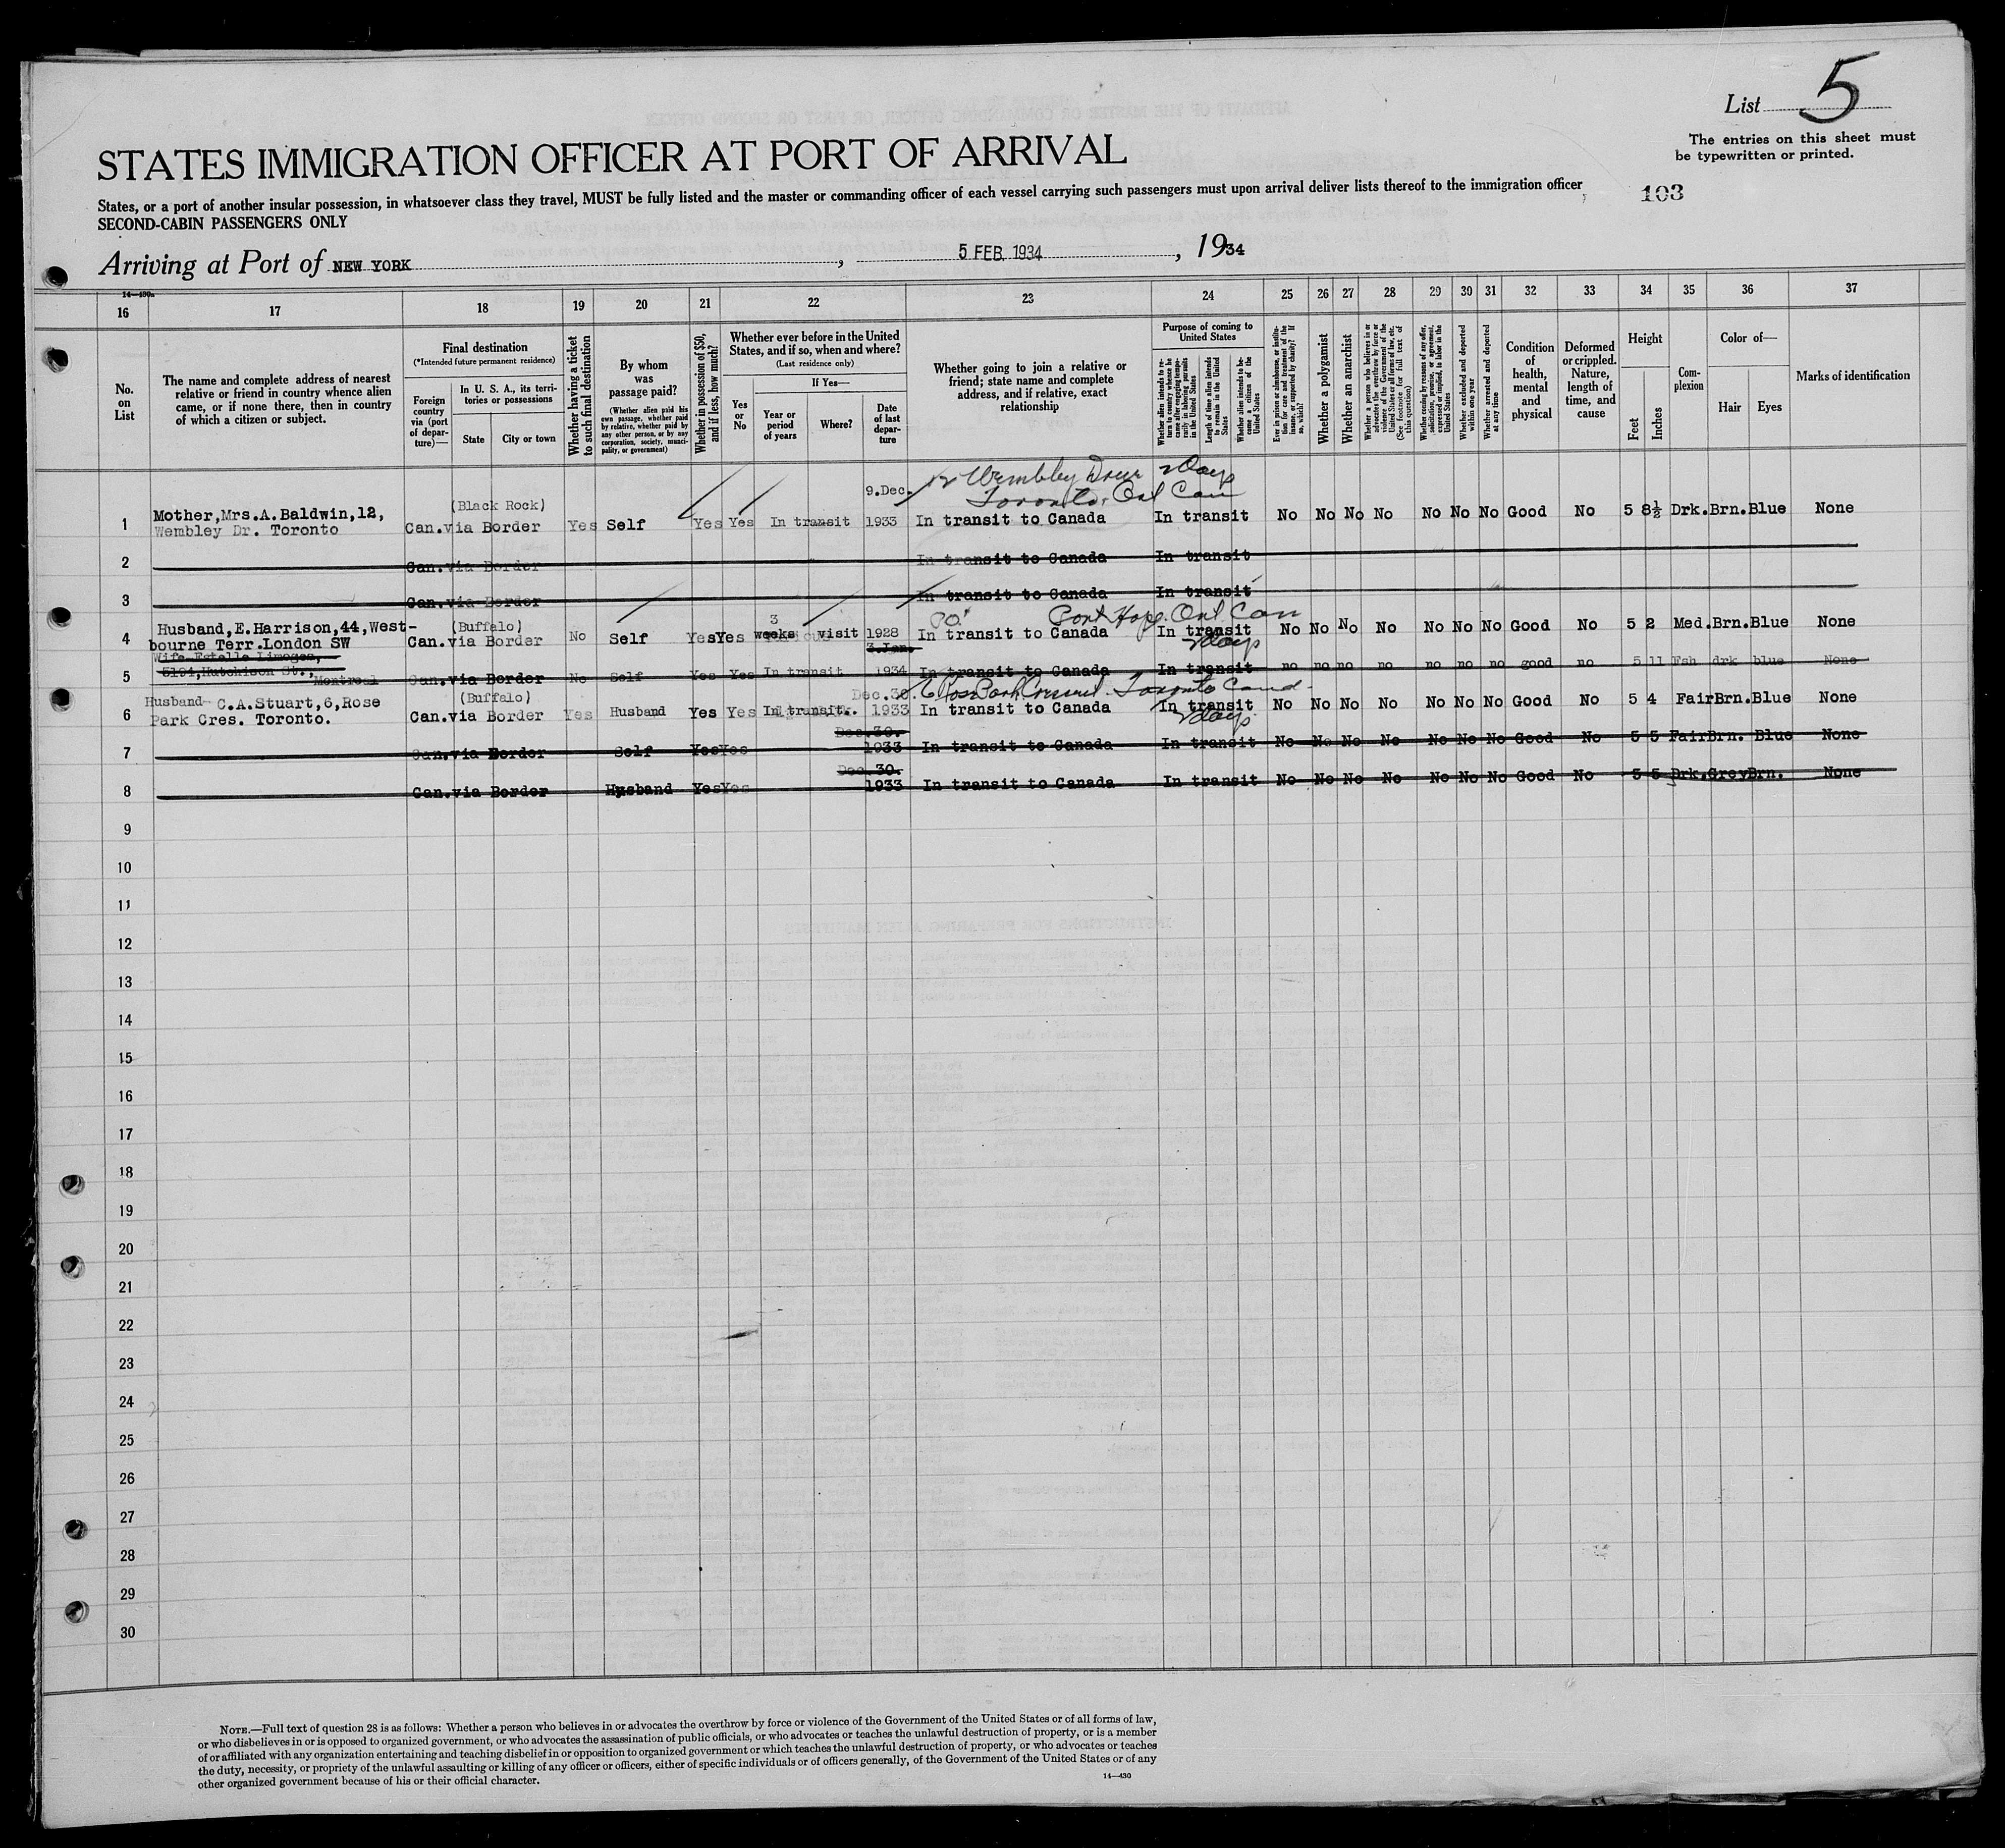 List 5
The entries on this sheet must
be typewritten or printed.
STATES IMMIGRATION OFFICER AT PORT OF ARRIVAL
103
States, or a port of another insular possession, in whatsoever class they travel, MUST be fully listed and the master or commanding officer of each vessel carrying such passengers must upon arrival deliver lists thereof to the immigration officer
SECOND-CABIN PASSENGERS ONLY
Arriving at Port of NEW YORK, 5 FEB 1934, 1934
14—430a
16 17 18 19 20 21 22 23 24 25 26 27 28 29 30 31 32 33 34 35 36 37
No. on List
The name and complete address of nearest
relative or friend in country whence alien
came, or if none there, then in country
of which a citizen or subject.
Final destination
(*Intended future permanent residence)
Foreign country via (port of departure)—
In U. S. A., its territories or possessions
State
City or town
Whether having a ticket to such final destination
By whom was passage paid?
(Whether alien paid his own passage, whether paid by relative, whether paid by any other person, or by any corporation, society, municipality, or government)
Whether in possession of $50, and if less, how much?
Whether ever before in the United States, and if so, when and where?
(Last residence only)
Yes or No
If Yes—
Year or period of years
Where?
Date of last departure
Whether going to join a relative or
friend; state name and complete
address, and if relative, exact
relationship
Purpose of coming to United States
Whether alien intends to return to country whence he came after engaging temporarily in laboring pursuits in the United States
Length of time alien intends to remain in the United States
Whether alien intends to become a citizen of the United States
Ever in prison or almshouse, or institution for care and treatment of the insane, or supported by charity? If so, which?
Whether a polygamist
Whether an anarchist
Whether a person who believes in or advocates the overthrow by force or violence of the Government of the United States or all forms of law, etc. (See footnote for full text of this question)
Whether coming by reason of any offer, solicitation, promise, or agreement, expressed or implied, to labor in the United States
Whether excluded and deported within one year
Whether arrested and deported at any time
Condition of health, mental and physical
Deformed or crippled. Nature, length of time, and cause
Height
Feet
Inches
Complexion
Color of—
Hair
Eyes
Marks of identification
12 Wembley Drive 2 Days
(Black Rock) 9.Dec. Toronto. Ont Can
1 Mother,Mrs.A.Baldwin,12, Wembley Dr. Toronto Can.via Border Yes Self Yes Yes In transit 1933 In transit to Canada In transit No No No No No No No Good No 5 8½ Drk. Brn. Blue None
2 Can.via Border In transit to Canada In transit
3 Can.via Border In transit to Canada In transit
(Buffalo) 3 P.O. Port Hope. Ont Can
4 Husband,E.Harrison,44,West-
bourne Terr.London SW Can.via Border No Self Yes Yes weeks visit 1928 In transit to Canada In transit No No No No No No No Good No 5 2 Med. Brn. Blue None
2 days
Wife-Estelle Limoges, 3.Jan.
5 5194,Hutchison St., Montreal Can.via Border No Self Yes Yes In transit 1934 In transit to Canada In transit no no no no no no no good no 5 11 Fsh drk blue None
(Buffalo) Dec.30. 6 Rose Park Crescent. Toronto Canad
6 Husband- C.A.Stuart,6,Rose
Park Cres. Toronto. Can.via Border Yes Husband Yes Yes In transit. 1933 In transit to Canada In transit No No No No No No No Good No 5 4 Fair Brn. Blue None
2 days
Dec.30.
7 Can.via Border Self Yes Yes 1933 In transit to Canada In transit No No No No No No No Good No 5 5 Fair Brn. Blue None
Dec.30.
8 Can.via Border Husband Yes Yes 1933 In transit to Canada In transit No No No No No No No Good No 5 5 Drk. Grey Brn. None
9
10
11
12
13
14
15
16
17
18
19
20
21
22
23
24
25
26
27
28
29
30
NOTE.—Full text of question 28 is as follows: Whether a person who believes in or advocates the overthrow by force or violence of the Government of the United States or of all forms of law,
or who disbelieves in or is opposed to organized government, or who advocates the assassination of public officials, or who advocates or teaches the unlawful destruction of property, or is a member
of or affiliated with any organization entertaining and teaching disbelief in or opposition to organized government or which teaches the unlawful destruction of property, or who advocates or teaches
the duty, necessity, or propriety of the unlawful assaulting or killing of any officer or officers, either of specific individuals or of officers generally, of the Government of the United States or of any
other organized government because of his or their official character.
14—430